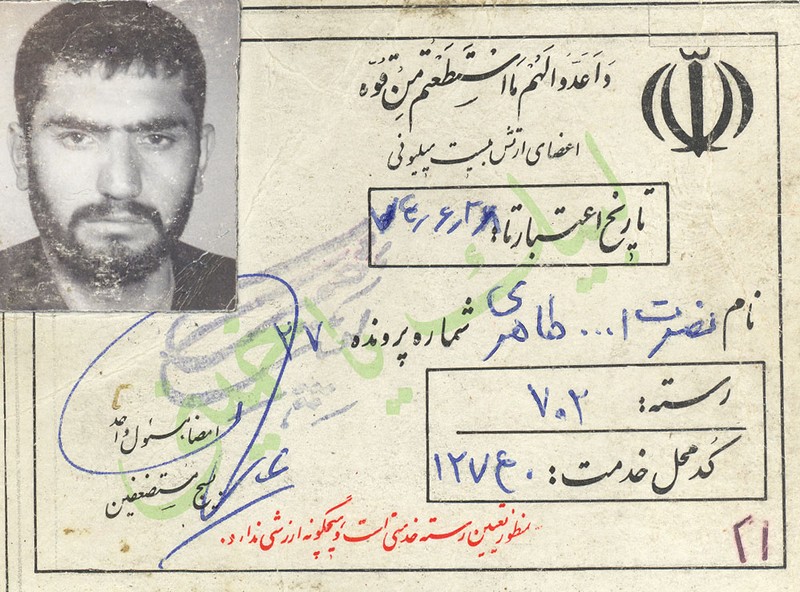 وَاَعِدُّوا لَهُمْ مَا اسْتَطَعْتُمْ مِنْ قُوَّه
اعضای ارتش بیست میلیونی
تاریخ اعتبار تا: ۷۴/۶/۲۸
نام نصرت ا... طاهری شماره پرونده ۲۷
رسته: ۷۰۲
کد محل خدمت: ۱۲۷۴۰
امضا، مسئول واحد
بسیج مستضعفین
منظور تعیین رسته خدمتی است و هیچگونه ارزشی ندارد.
۲۱
لبیک یا خمینی